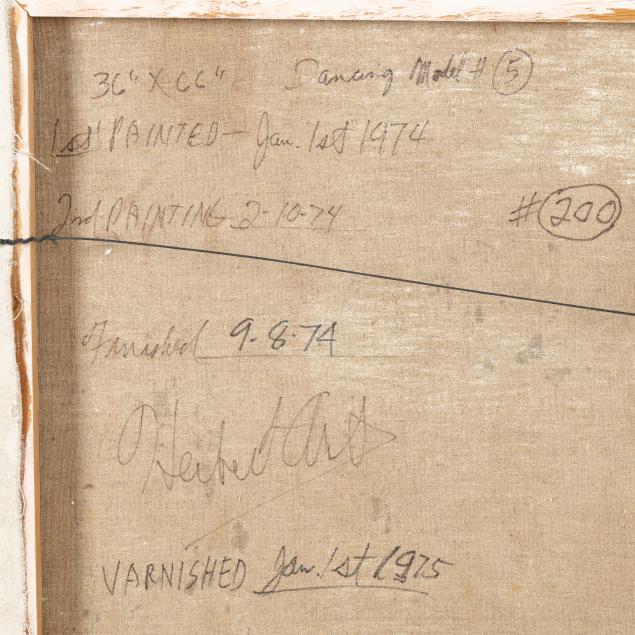 36" X 66" Dancing Model # 5
1st PAINTED — Jan. 1st 1974
2nd PAINTING 2-10-74 #200
Finished 9-8-74
Herbert
VARNISHED Jan. 1st 1975